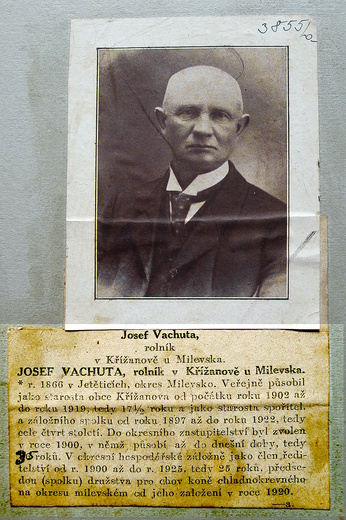 3855/a
Josef Vachuta,
rolník
v Křížanově u Milevska.
JOSEF VACHUTA, rolník v Křížanově u Milevska.
* r. 1866 v Jetěticích, okres Milevsko. Veřejně působil
jako starosta obce Křížanova od počátku roku 1902 až
do roku 1919, tedy 17½ roku a jako starosta spořitel.
a záložního spolku od roku 1897 až do roku 1922, tedy
celé čtvrt století. Do okresního zastupitelství byl zvolen
v roce 1900, v němž působí až do dnešní doby, tedy
35 roků. V okresní hospodářské záložně jako člen ředi-
telství od r. 1900 až do r. 1925, tedy 25 roků, předse-
dou (spolku) družstva pro chov koně chladnokrevného
na okresu milevském od jeho založení v roce 1920.
—a.